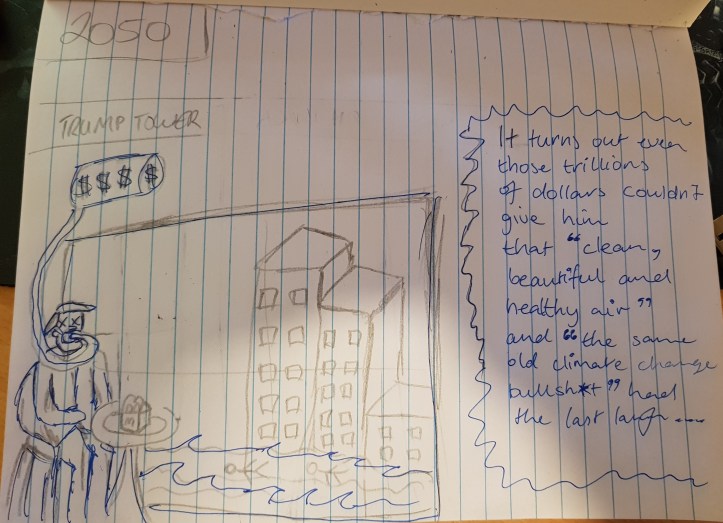 2050
TRUMP TOWER
$ $ $ $
It turns out even
those trillions
of dollars couldn't
give him
that "clean,
beautiful and
healthy air"
and "the same
old climate change
bullsh*t" had
the last laugh....